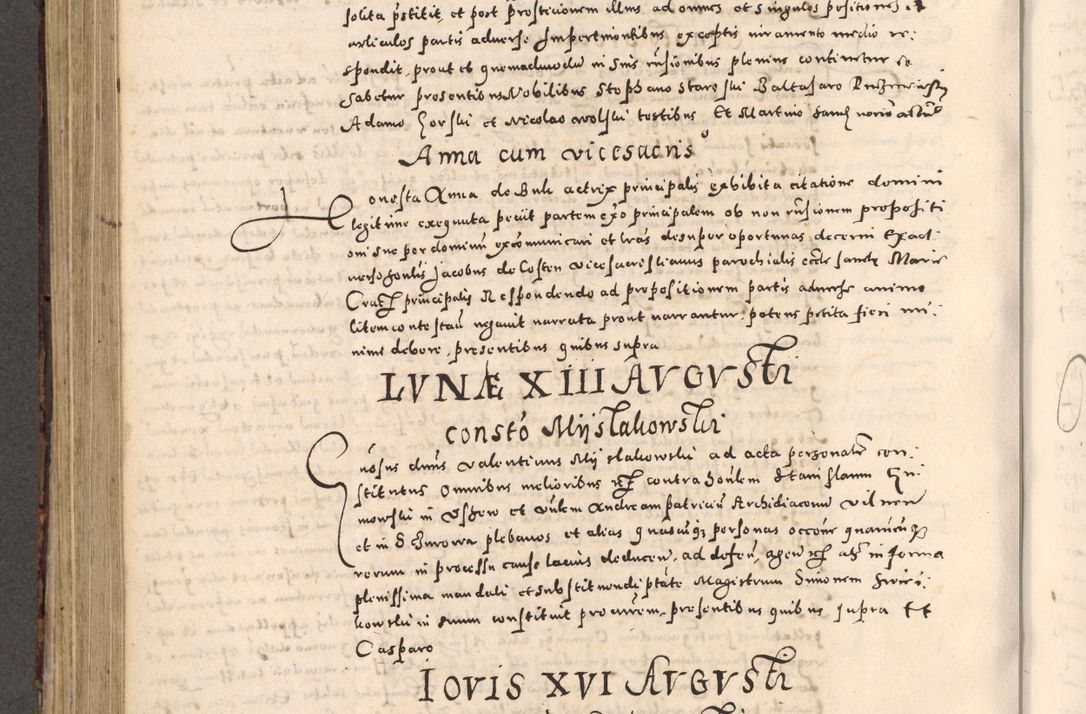 solita prestitit, et post prosticionem illius ad omnes et singulos positiones et
articulos partis adverse Impertinentibus exceptis iuramento medio re:
spondit, prout et quemadmodum in suis rnsionibus plenius continetur et
habetur presentibus Nobilibus Stophano Staroski Baltasaro
Adamo Gorski et Nicolao Wolski testibus Et Martino
Anna cum vicesacris
onesta Anna de Buk actrix principalis exhibita citatione domini
legitime exequuta peciit partem exo principalem ob non rnsionem propositi
oni sue per dominum excommunicari et lras desuper oportunas decerni Exact
Jacobus de Costen vicesacristianus parochialis eccle sancte Marie
Crac principalis Respondendo ad propositionem partis adverse animo
litem contestan negavit narrata prout narrantur, petens petita fieri mi:
nime debere, presentibus quibus supra
LVNÆ XIII AVGVSTI
consto Mijslakowski
dnus Valentinus Mijslakowski ad acta personalr con:
stitutus Omnibus melioribus contra Stanislaum Gni
mowski in et Andream patricium Archidiaconum Vilnen
et in plebanos et alias quascunq personas occone quarumcunq
rerum in processu cause lacius deducen, ad defen, agen in forma
plenissima mandati et substituendi ptate Magistrum Simonem
kowski in suum constituit procurem, presentibus quibus supra Et
Casparo
IOVIS XVI AVGVSTI